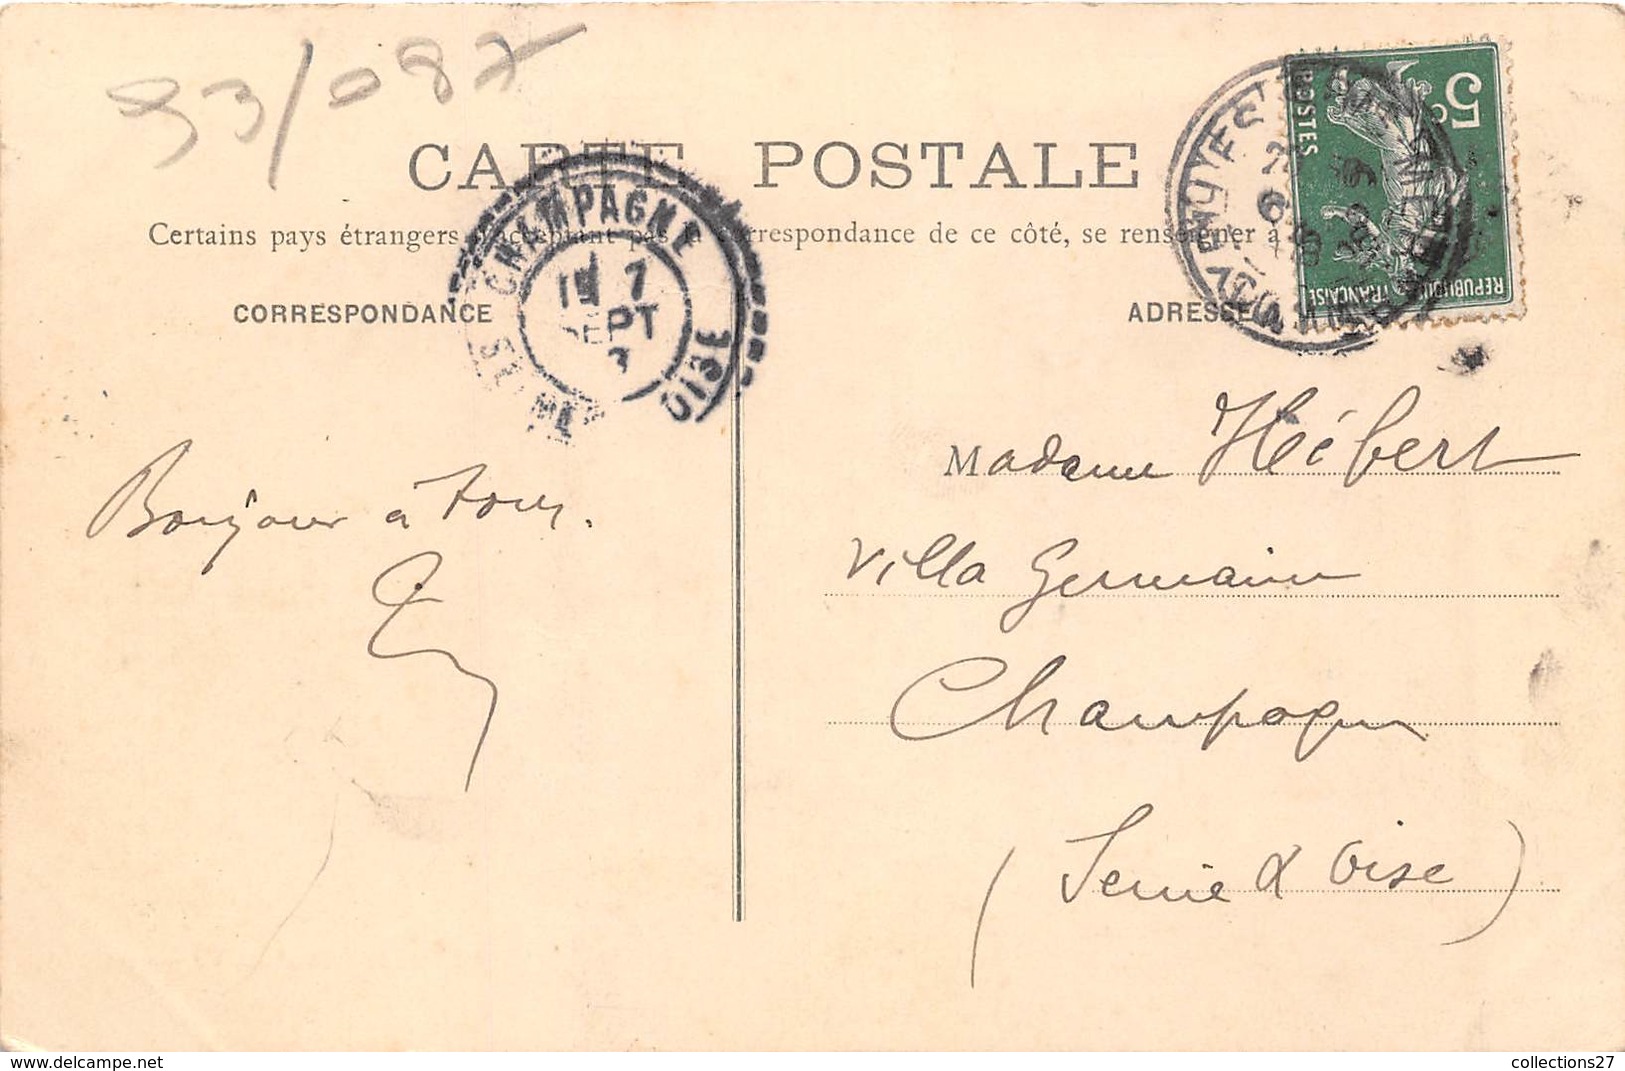 93/087
CARTE POSTALE
Certains pays étrangers n'acceptant pas la correspondance de ce côté, se renseigner à la
CORRESPONDANCE
ADRESSE
CHAMPAGNE
7
SEPT
OISE
5c
POSTES
REPUBLIQUE FRANCAISE
Bonjour à tous.
Madame Hébert
Villa Germaine
Champagne
(Seine & Oise)
www.delcampe.net
collections27